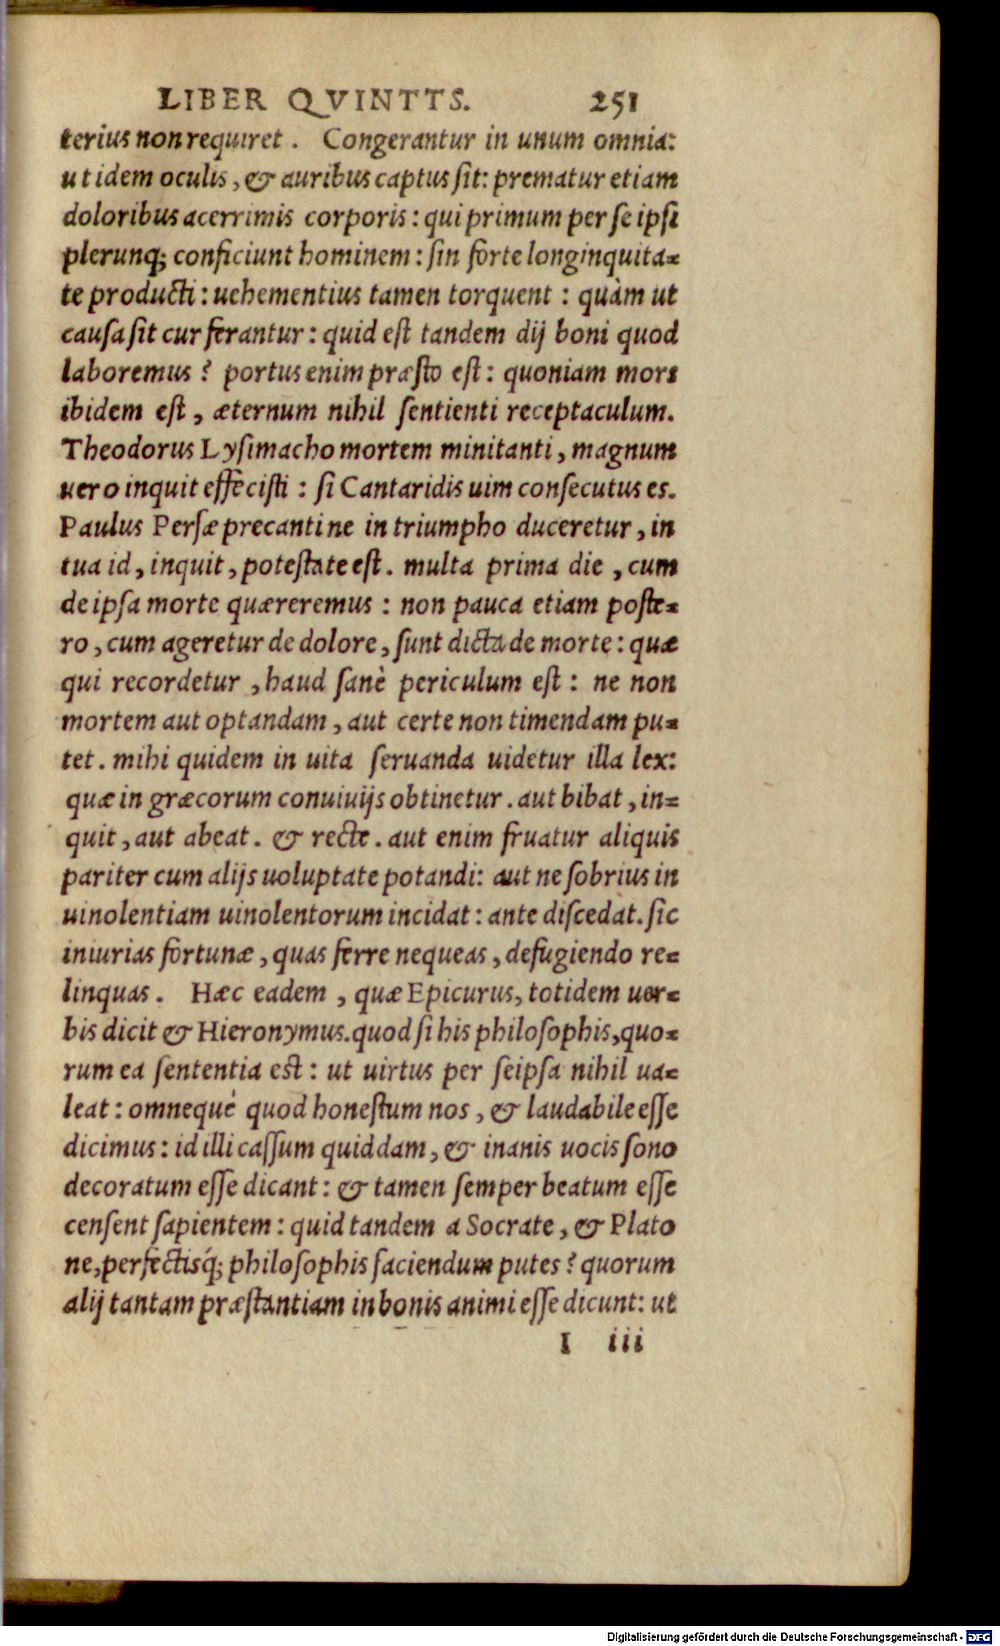 LIBER QVINTTS. 251
terius non requiret. Congerantur in unum omnia:
ut idem oculis, & auribus captus ſit: prematur etiam
doloribus acerrimis corporis: qui primum per ſe ipſi
plerunq; conficiunt hominem: ſin forte longinquita=
te producti: uehementius tamen torquent: quàm ut
cauſa ſit cur ferantur: quid eſt tandem dij boni quod
laboremus? portus enim præſto eſt: quoniam mors
ibidem eſt, æternum nihil ſentienti receptaculum.
Theodorus Lyſimacho mortem minitanti, magnum
uero inquit effeciſti: ſi Cantaridis uim conſecutus es.
Paulus Perſæ precanti ne in triumpho duceretur, in
tua id, inquit, poteſtate eſt. multa prima die, cum
de ipſa morte quæreremus: non pauca etiam poſte=
ro, cum ageretur de dolore, ſunt dicta de morte: quæ
qui recordetur, haud ſanè periculum eſt: ne non
mortem aut optandam, aut certe non timendam pu=
tet. mihi quidem in uita ſeruanda uidetur illa lex:
quæ in græcorum conuiuijs obtinetur. aut bibat, in=
quit, aut abeat. & recte. aut enim fruatur aliquis
pariter cum alijs uoluptate potandi: aut ne ſobrius in
uinolentiam uinolentorum incidat: ante diſcedat. ſic
iniurias fortunæ, quas ferre nequeas, defugiendo re=
linquas. Hæc eadem, quæ Epicurus, totidem uer=
bis dicit & Hieronymus. quod ſi his philoſophis, quo=
rum ea ſententia est: ut uirtus per ſeipſa nihil ua=
leat: omnequè quod honeſtum nos, & laudabile eſſe
dicimus: id illi caſſum quiddam, & inanis uocis ſono
decoratum eſſe dicant: & tamen ſemper beatum eſſe
cenſent ſapientem: quid tandem a Socrate, & Plato
ne, perfectisq́; philoſophis faciendum putes? quorum
alij tantam præſtantiam in bonis animi eſſe dicunt: ut
I iii
Digitalisierung gefördert durch die Deutsche Forschungsgemeinschaft - DFG